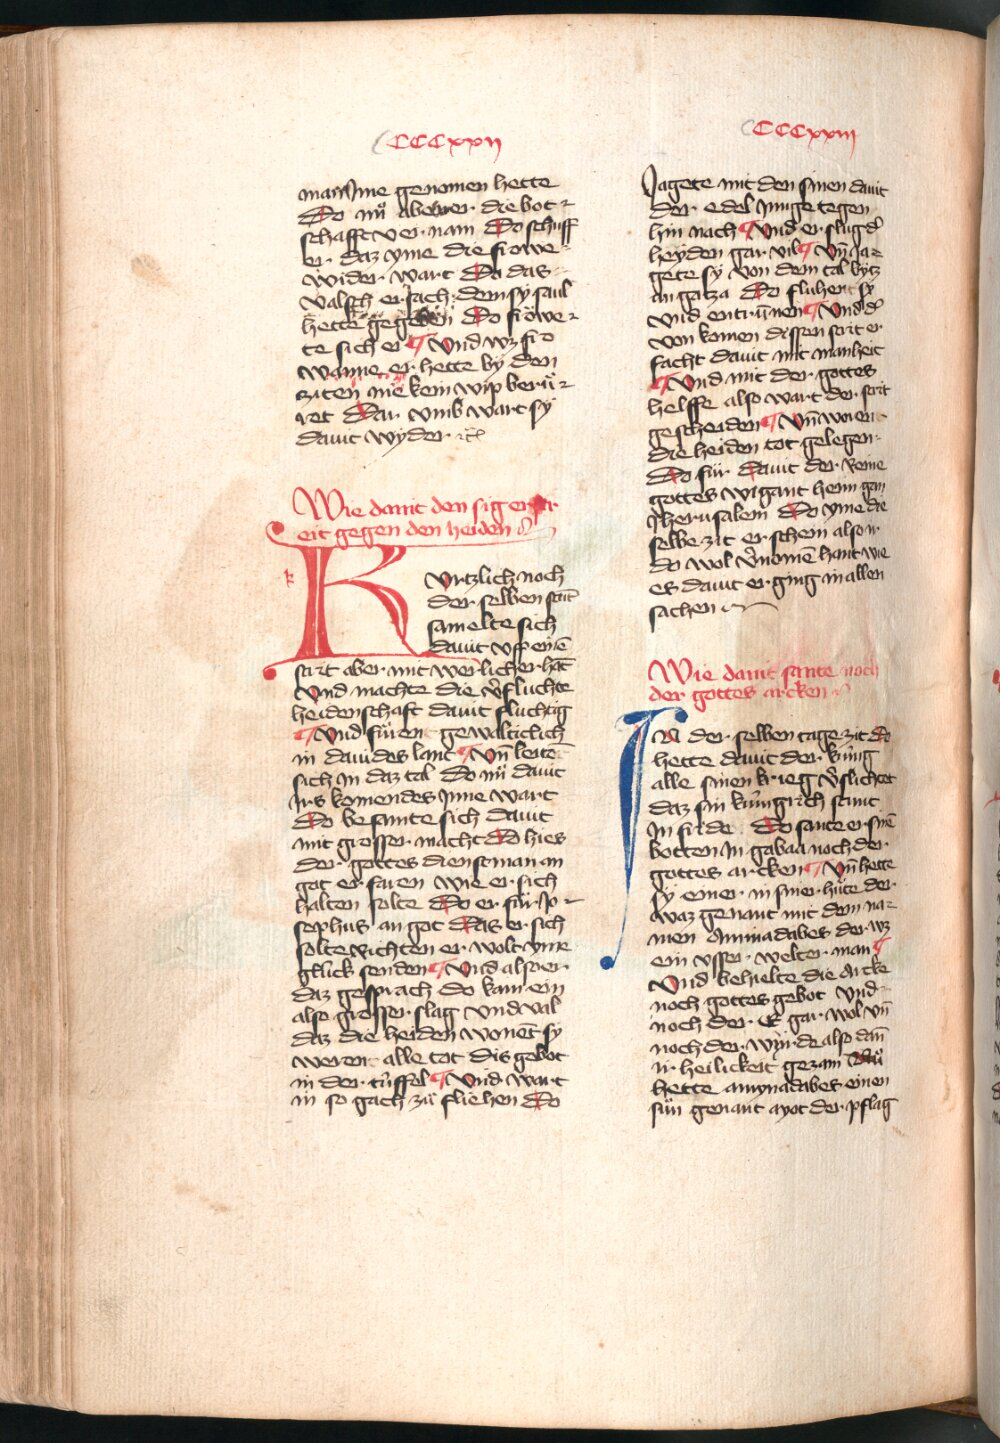 CCCxxij
man Jme genomen hette
Do nuͦ Abener die bot⸗
schafft ver nam Do schuff
er daz yme die frowe
wider wart Do das
valsch er sach dem sy saul
hette gegeben Do froͤwe⸗
te sich er ¶ Vnd wz fro
wanne er hette by den
ziten nie kein wip beruͤ⸗
ret Dar vmb wart sy
dauit wyder ⁊c̄
Wie dauit den sig er str
eit gegen den heiden
k
KVrtzlich noch
der selben strit
samelte sich
dauit vff einē
strit aber mit werlicher hāt
Vnd machte die v̓fluchte
heidenschaft dauit fluchtig
¶ Vnd fuͤrent gewalticlich
in dauides lant ¶ Vn̄ leitē
sich in daz tal Do nuͦ dauit
Jrs komendes Jnne wart
Do besante sich dauit
mit grosser macht Do hies
der gottes dienstman an
got er faren wie er sich
halten solte Do er fuͦr Jo⸗
sephus an got Das er sich
solte richten er wolt yme
gluck senden ¶ Vnd also er
daz gesprach do kam ein
also grosser slag vnd val
daz die heiden wonēt sy
weren alle tot Dis gebot
in der tuͤffel ¶ Vnd wart
in so gach zuͦ fliehen Do
CCCxxiij
Jagete mit den sinen dauit
der edel Junge tegen
hin nach ¶ Vnd er slug d̓
heyden gar vil ¶ Vn̄ Ja⸗
gete sy von dem tal bytz
an gatza Do fluhent sy
vnd entrunnen ¶ Vnd d̓
von komen dissen strit er
facht dauit mit manheit
¶ Vnd mit der gottes
helffe also wart der strit
gescheiden ¶ Vn̄ worent
die heiden tot gelegen
Do fuͦr Dauit der reine
gottes wigant heim gan
Jherusalem Do yme die
selbe zit er schein also ir
do wol v̓nomē hant wie
es dauit er ging in allen
sachen
Wie dauit sante noch
der gottes arcken
JN der selben tage zit do
hette dauit der kuͤnig
alle sinen krieg v̓slichtet
daz sin kuͤnigrich stunt
Jn fride Do sante er sine
botten Jn gabaa noch der
gottes arcken ¶ Vn̄ hette
sy einer in siner huͦte der
waz genant mit dem na⸗
men Aminadabes der wz
ein vsser welter man ¶
Vnd behielte die Arcke
noch gottes gebot vnd
noch der E gar wol vn̄
noch der wyrde also dan̄
ir heilickeit gezam Nuͦ
hette amynadabes einen
suͦn genant ayot der pflag